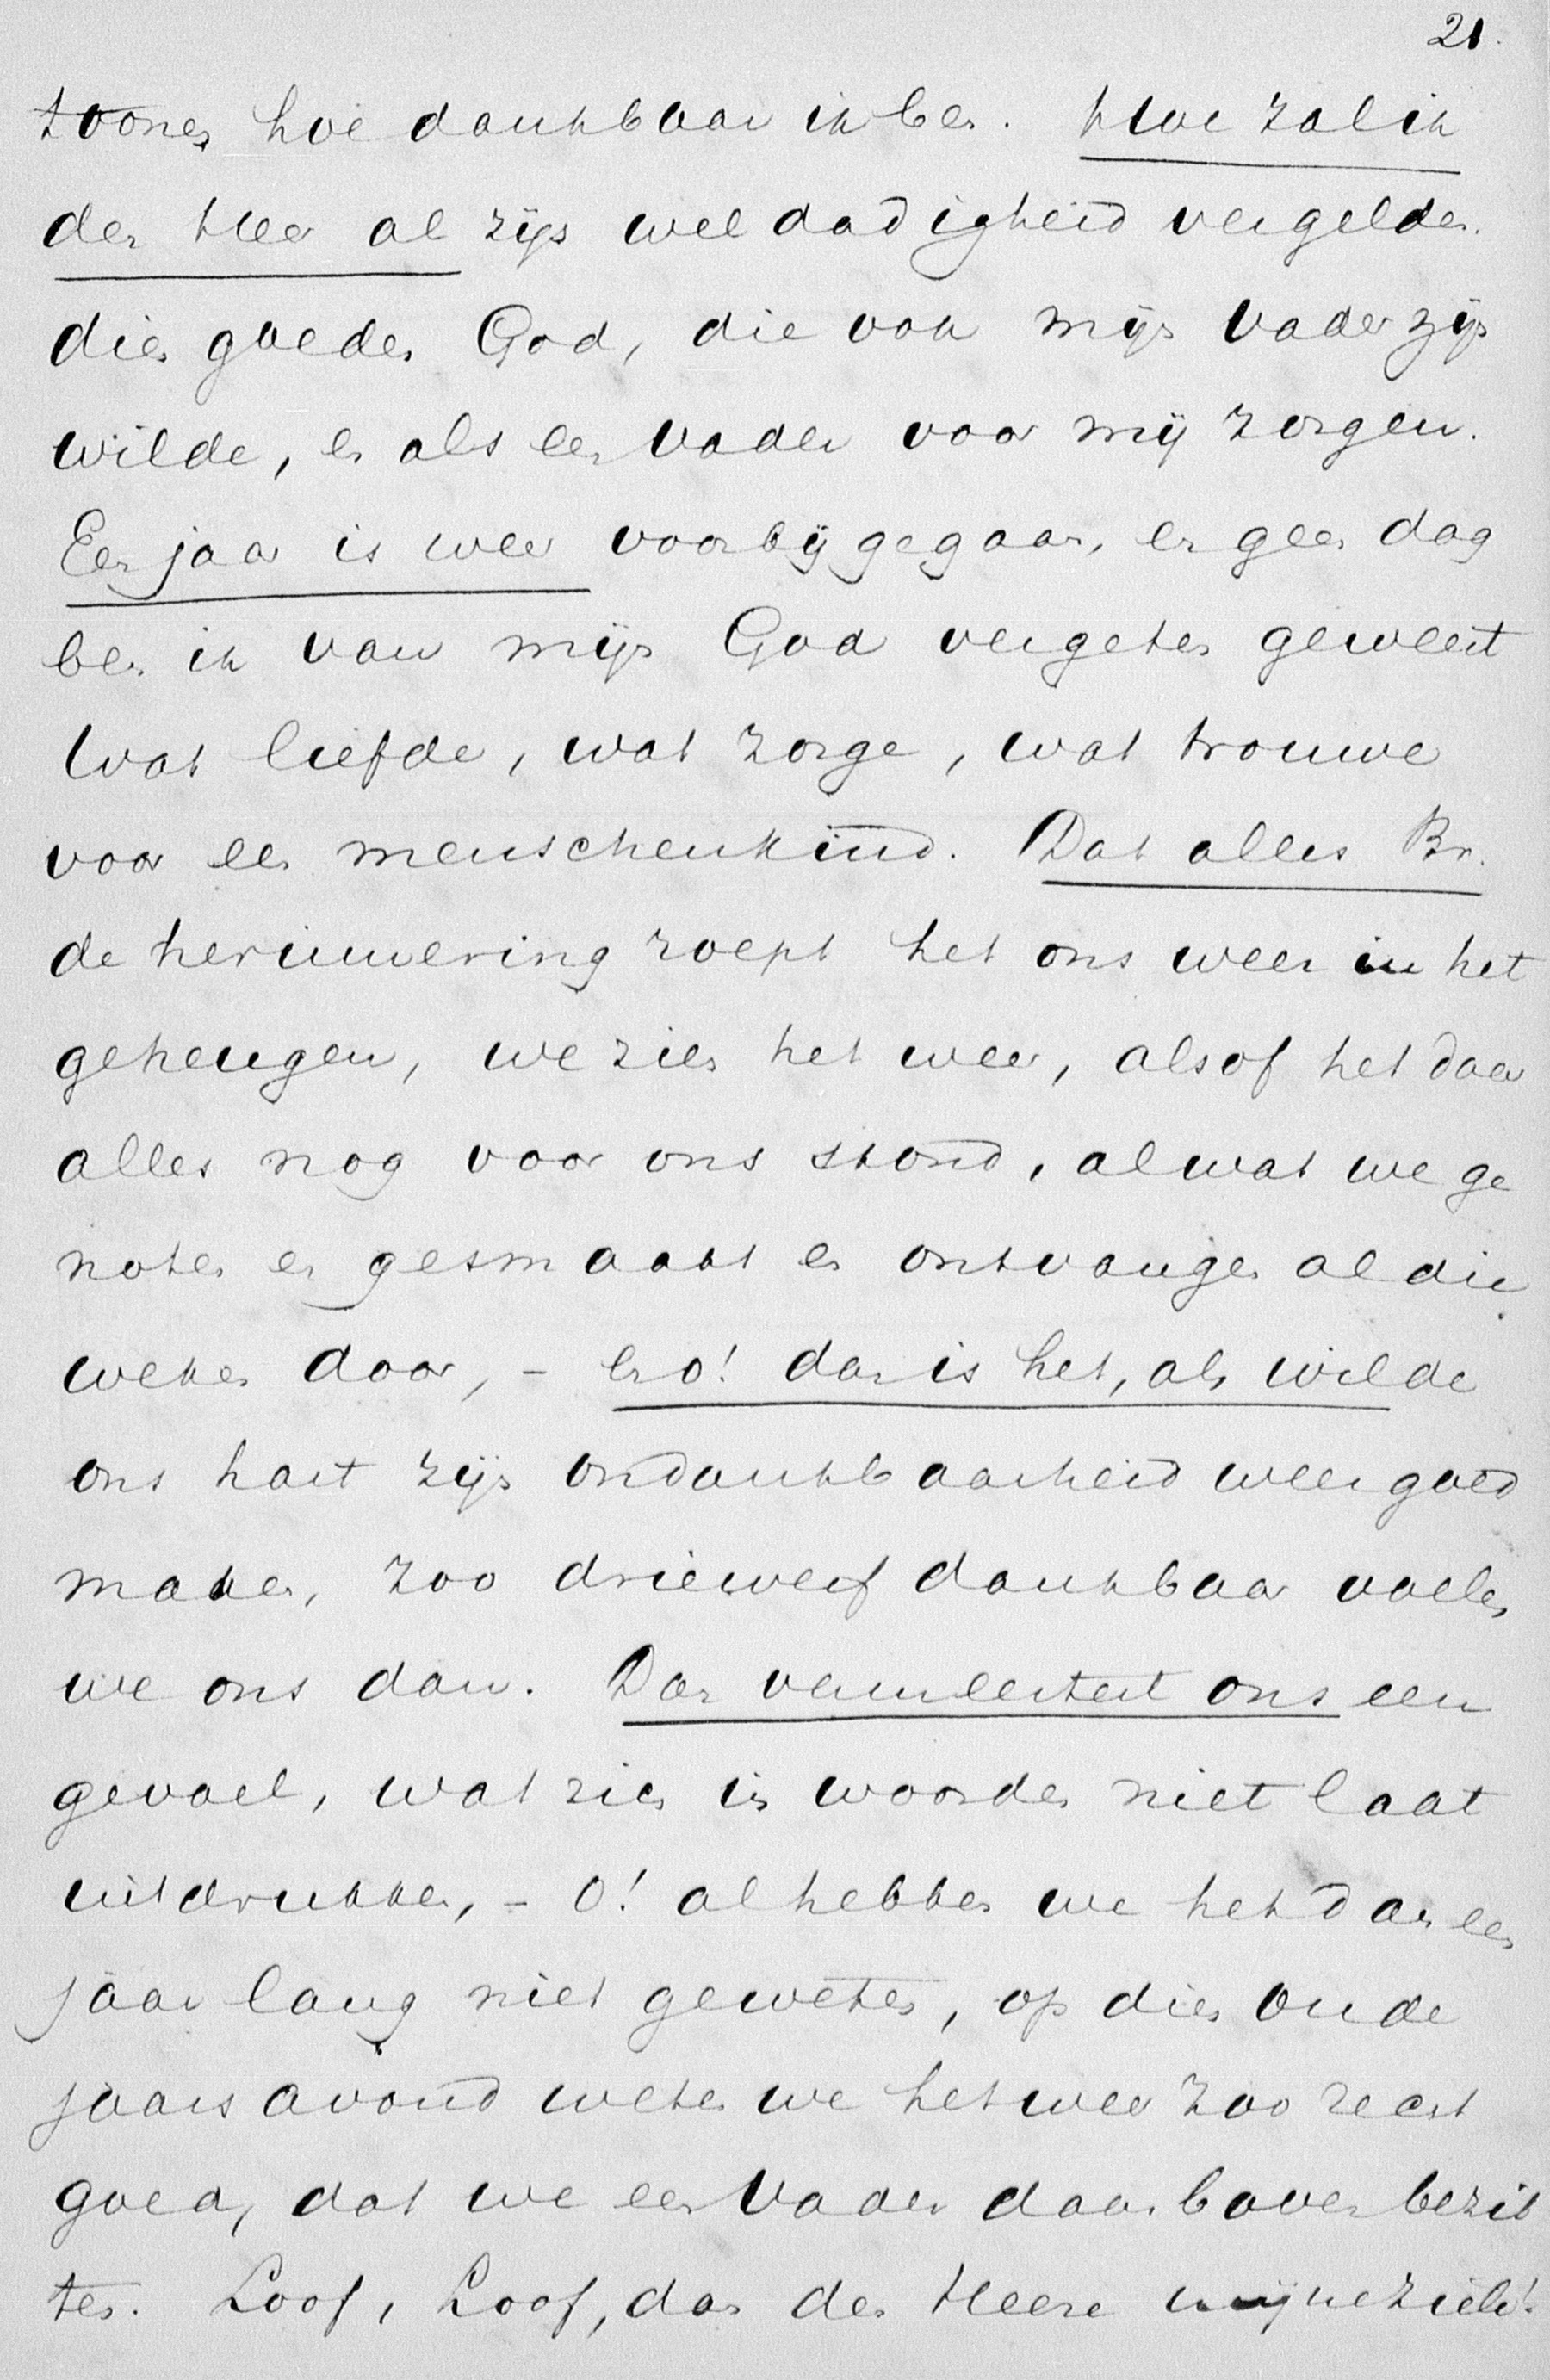 21.
toonen hoe dankbaar ik ben. Hoe zal ik
den Heer al zijn weldadigheid vergelden.
dien goeden God, die ook mijn Vader zijn
wilde, en als een Vader voor mij zorgen.
Een jaar is weer voorbij gegaan, en geen dag
ben ik van mijn God vergeten geweest
Wat liefde, wat zorge, wat trouwe
voor een menschenkind. Dat alles Br.
de herinnering roept het ons weer in het
geheugen, we zien het weer, alsof het daar
alles nog voor ons stond, al wat we ge
noten en gesmaakt en ontvangen al die
weken door, - en o! dan is het, als wilde
ons hart zijn ondankbaarheid weer goed
maken, zoo driewerf dankbaar voelen
we ons dan. Dan vermeestert ons een
gevoel, wat zich in woorden niet laat
uitdrukken, - O! al hebben we het dan een
jaar lang niet geweten, op dien oude
jaars avond weten we het weer zoo recht
goed, dat we een Vader daar boven bezit
ten. Loof, Loof, dan den Heere mijne ziele!